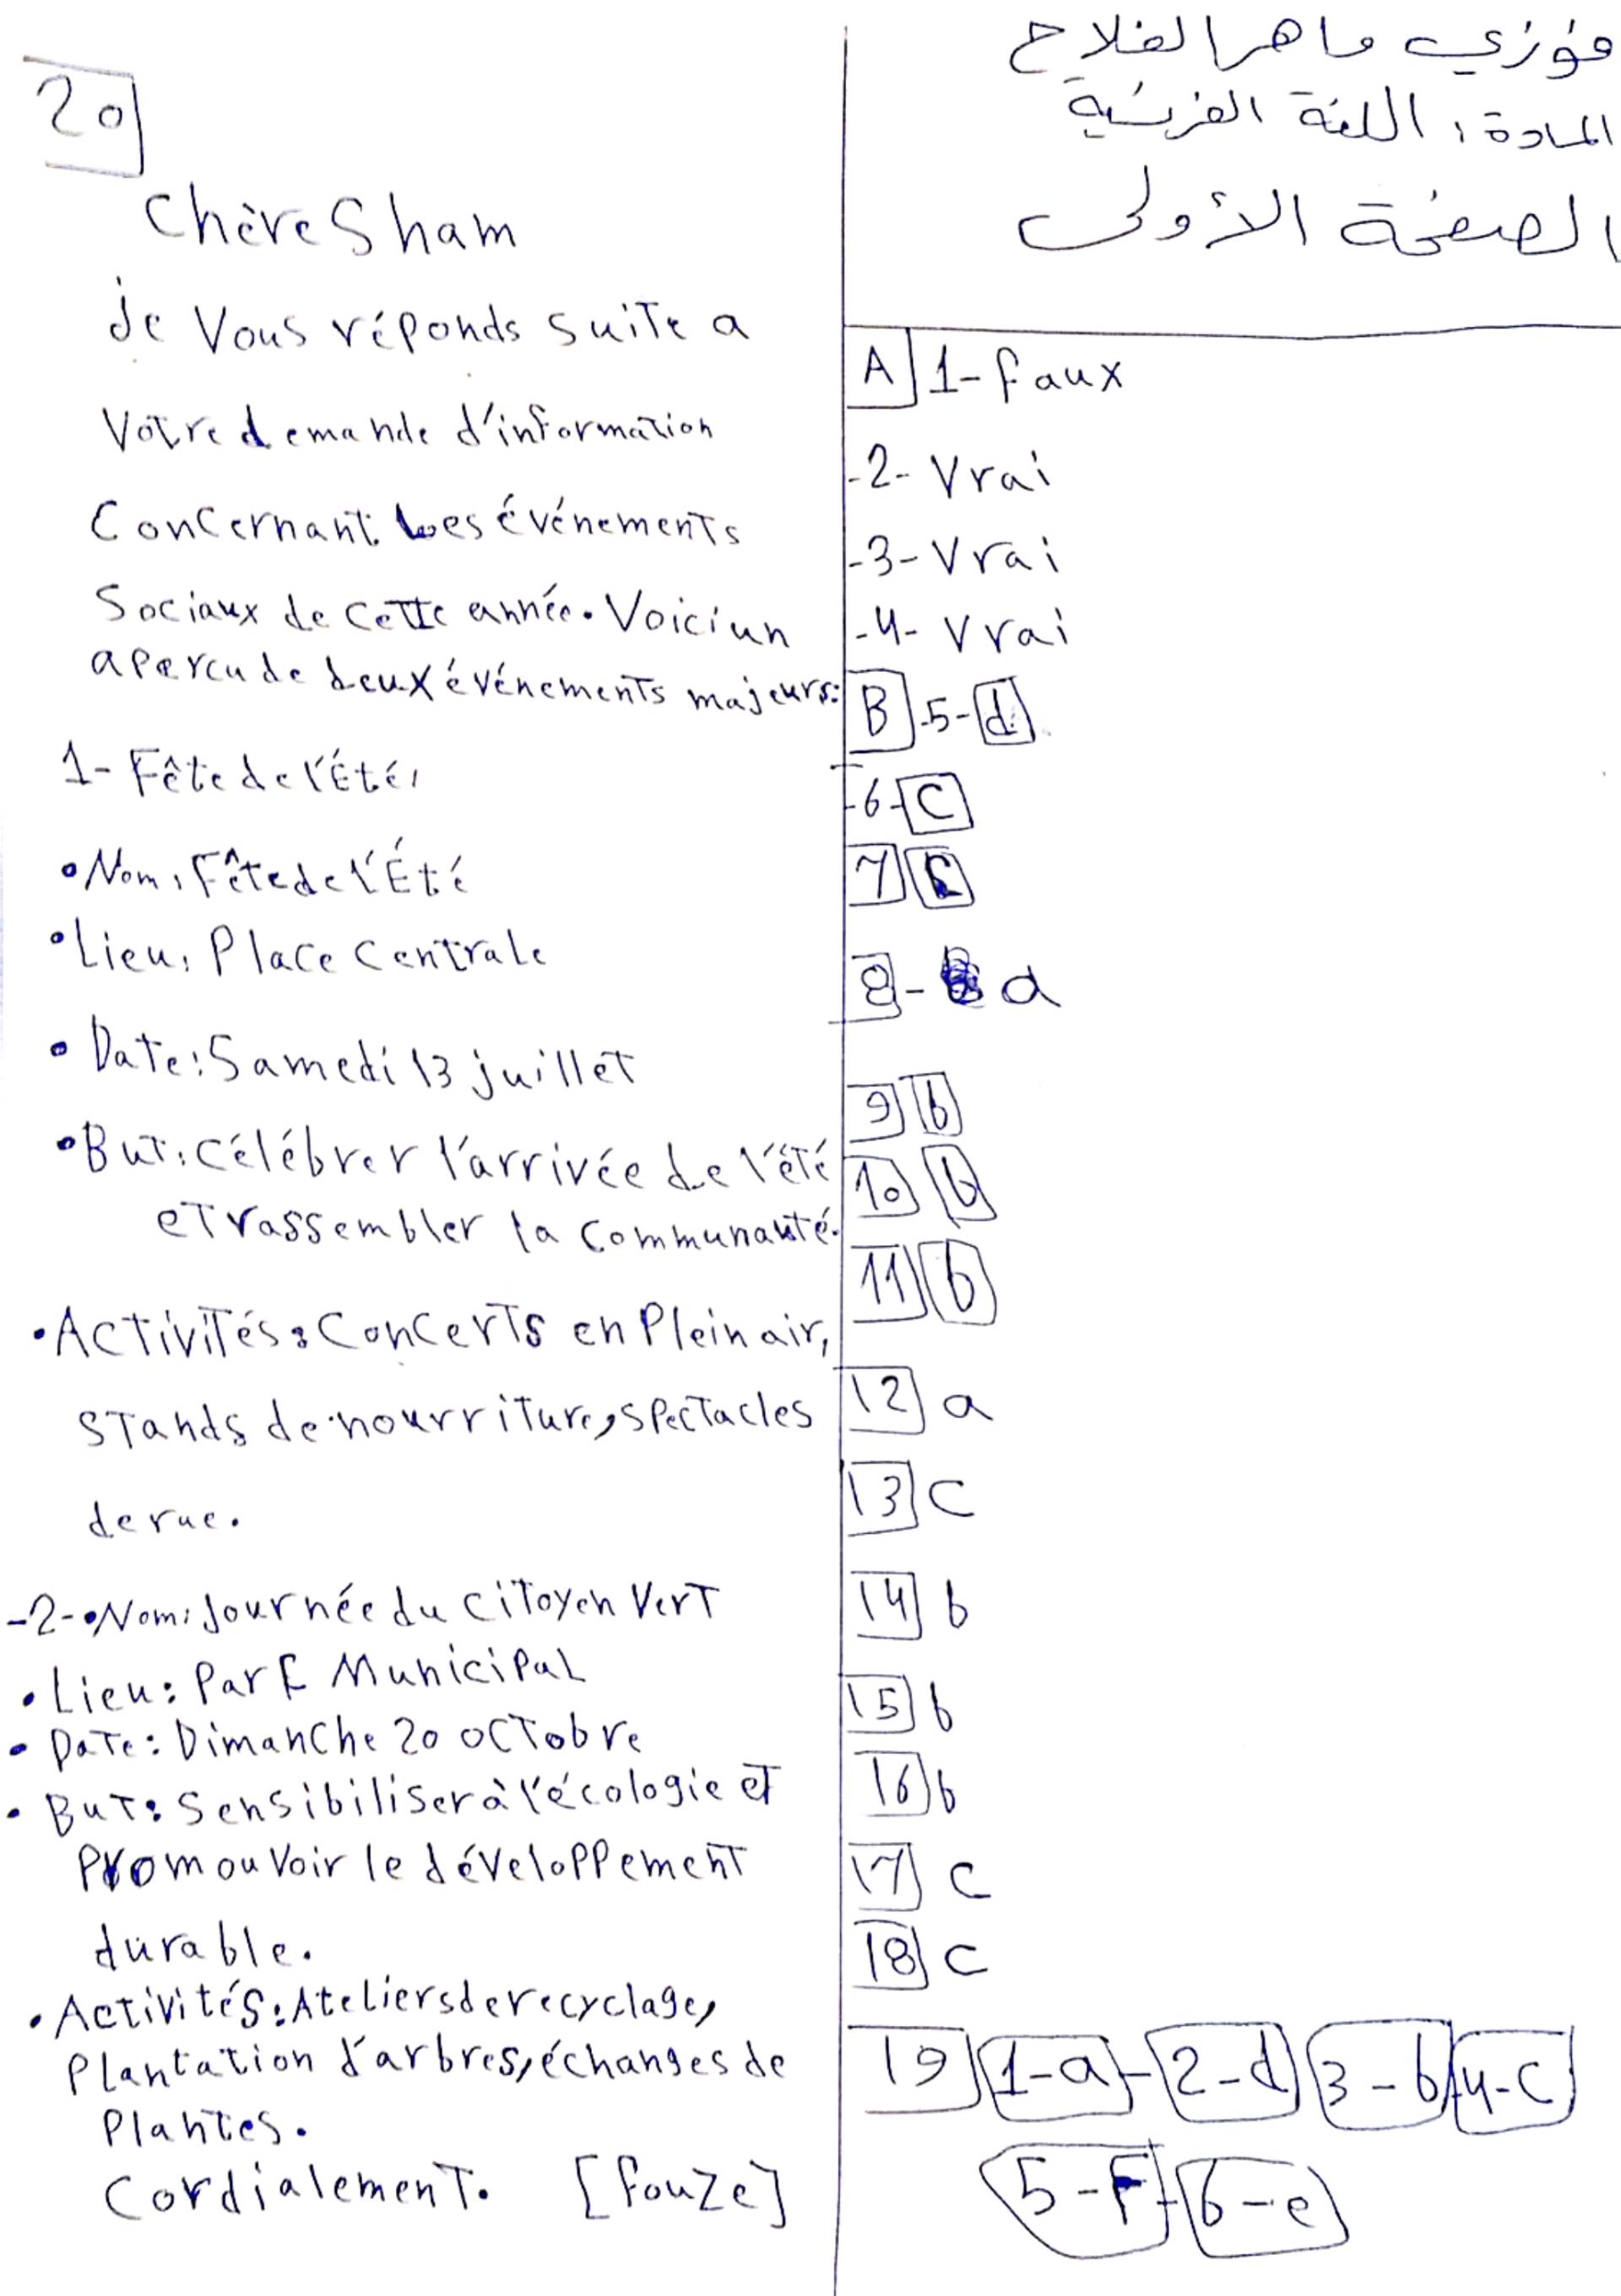 فوزي ماهر الفلاح
المادة: اللغة الفرنسية
الصفحة الأولى
A 1- faux
-2- Vrai
-3- Vrai
-4- Vrai
B -5- d
-6- C
7
8- a
9 b
10 b
11 b
12 a
13 C
14 b
15 b
16 b
17 C
18 C
19 1-a - 2-d 3-b 4-C
5-F - 6-e
20
Chère Sham
je Vous réponds suite a
Votre demande d'information
Concernant les événements
Sociaux de cette année. Voici un
apercu de deux événements majeurs:
1- Fête de l'Été:
• Nom: Fête de l'Été
• Lieu: Place Centrale
• Date: Samedi 13 juillet
• But: Célébrer l'arrivée de l'été
et rassembler la communauté.
• Activités: Concerts en Plein air,
stands de nourriture, spectacles
de rue.
-2- • Nom: Journée du Citoyen Vert
• Lieu: Parc Municipal
• Date: Dimanche 20 octobre
• But: Sensibiliser à l'écologie et
Promouvoir le développement
durable.
• Activités: Ateliers de recyclage,
Plantation d'arbres, échanges de
Plantes.
Cordialement. [fouze]